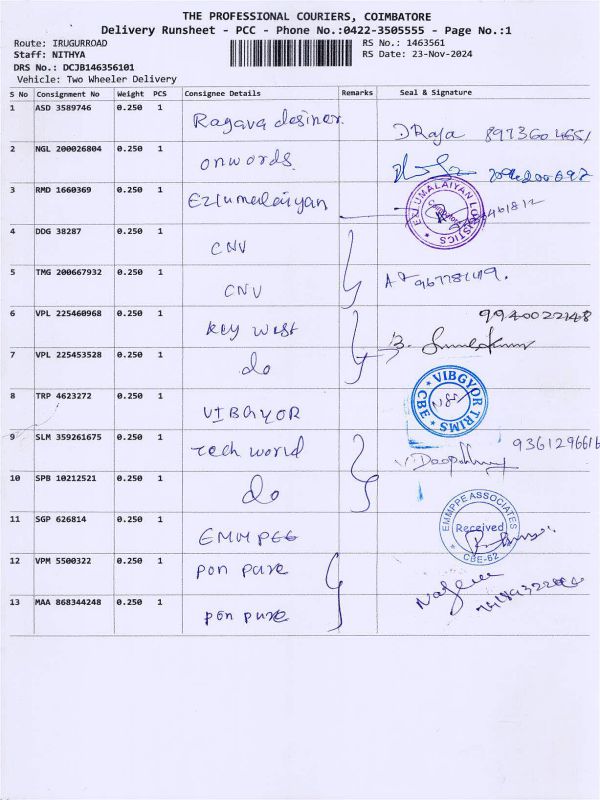 THE PROFESSIONAL COURIERS, COIMBATORE
Delivery Runsheet - PCC - Phone No.:0422-3505555 - Page No.:1
Route: IRUGURROAD RS No.: 1463561
Staff: NITHYA RS Date: 23-Nov-2024
DRS No.: DCJB146356101
Vehicle: Two Wheeler Delivery
S No Consignment No Weight PCS Consignee Details Remarks Seal & Signature
1 ASD 3589746 0.250 1 Ragava desiner DRaja
2 NGL 200026804 0.250 1 onwords
3 RMD 1660369 0.250 1 Ezlumalaiyan EZLUMALAIYAN LOGISTICS
4 DDG 38287 0.250 1 CNV
5 TMG 200667932 0.250 1 CNV
6 VPL 225460968 0.250 1 key west 9940022148
7 VPL 225453528 0.250 1 do
8 TRP 4623272 0.250 1 VIBGYOR VIBGYOR TRIMS CBE
9 SLM 359261675 0.250 1 Tech world 9361296616
10 SPB 10212521 0.250 1 do
11 SGP 626814 0.250 1 EMMPEE EMMPPE ASSOCIATES Received CBE-62
12 VPM 5500322 0.250 1 pon pure
13 MAA 868344248 0.250 1 pon pure